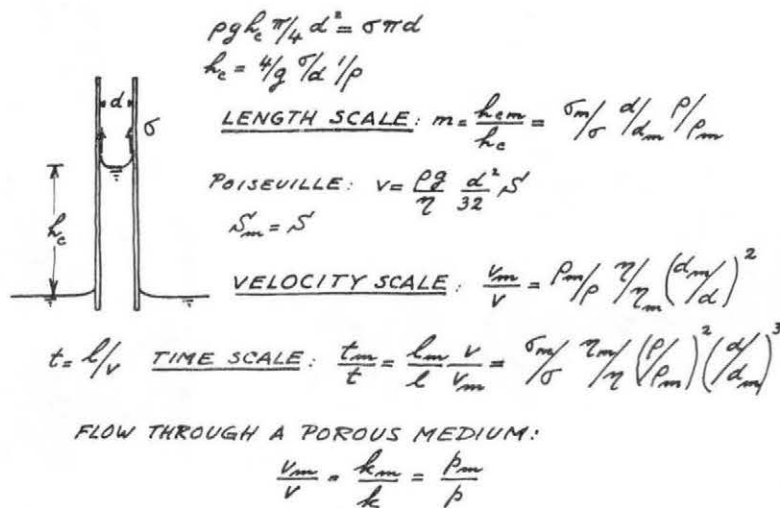 ρgh_c π/4 d² = σπd
h_c = 4/g σ/d 1/ρ
d
σ
h_c
LENGTH SCALE: m = h_cm/h_c = σ_m/σ d/d_m ρ/ρ_m
POISEUILLE: v = ρg/η d²/32 S
S_m = S
VELOCITY SCALE: v_m/v = ρ_m/ρ η/η_m (d_m/d)²
t = l/v TIME SCALE: t_m/t = l_m/l v/v_m = σ_m/σ η_m/η (ρ/ρ_m)² (d/d_m)³
FLOW THROUGH A POROUS MEDIUM:
v_m/v = k_m/k = p_m/p